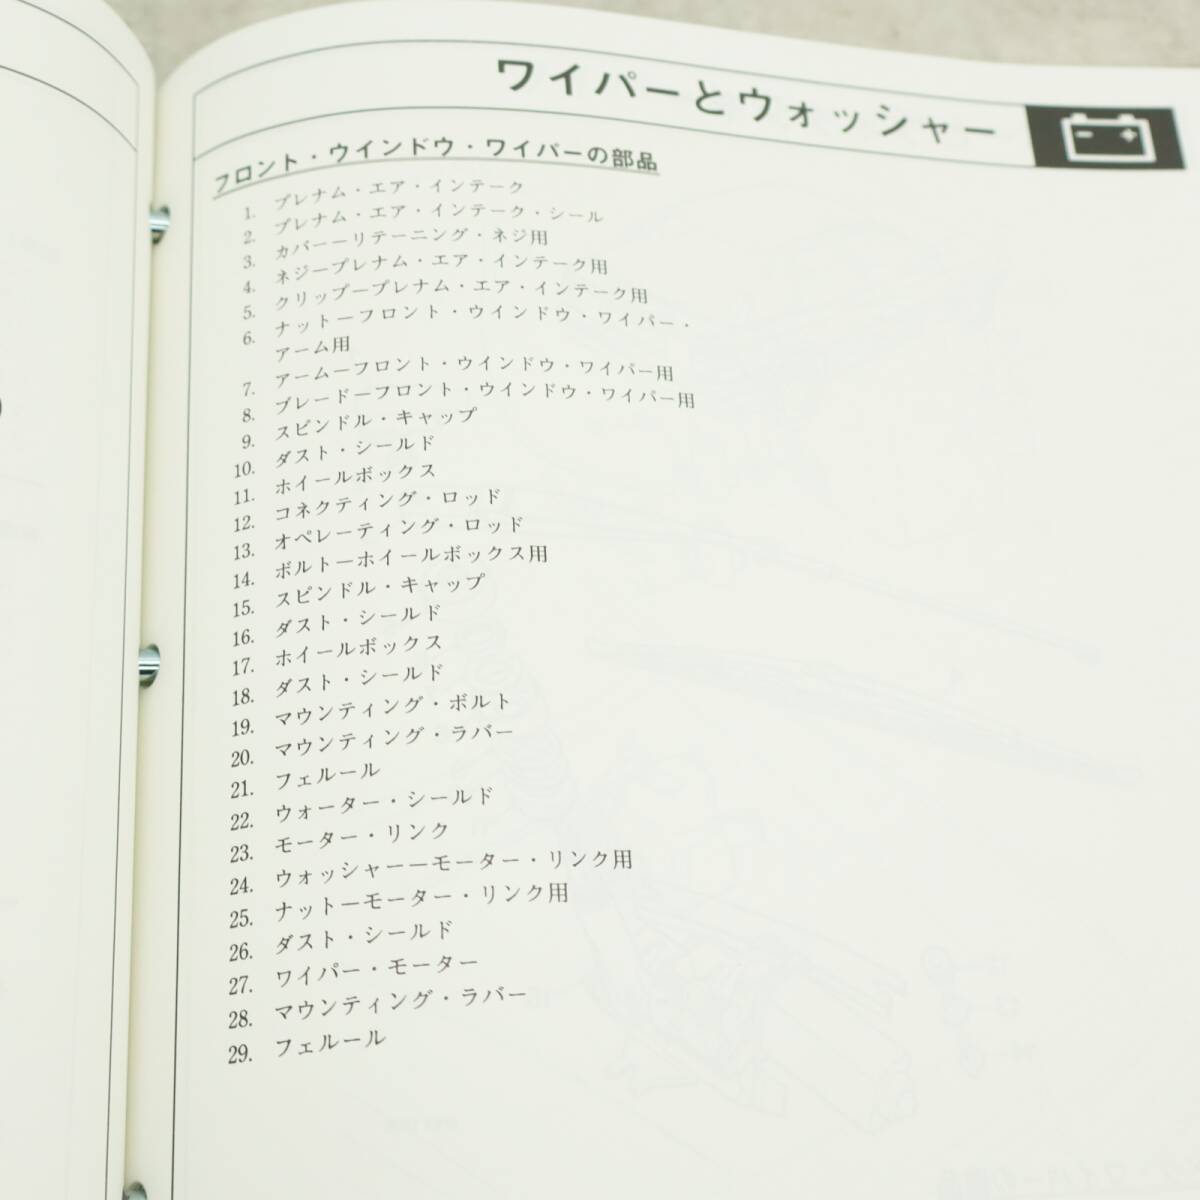 ワイパーとウォッシャー
フロント・ウインドウ・ワイパーの部品
1. プレナム・エア・インテーク
2. プレナム・エア・インテーク・シール
3. カバーーリテーニング・ネジ用
4. ネジープレナム・エア・インテーク用
5. クリップープレナム・エア・インテーク用
6. ナットーフロント・ウインドウ・ワイパー・
アーム用
7. アームーフロント・ウインドウ・ワイパー用
8. ブレードーフロント・ウインドウ・ワイパー用
9. スピンドル・キャップ
10. ダスト・シールド
11. ホイールボックス
12. コネクティング・ロッド
13. オペレーティング・ロッド
14. ボルトーホイールボックス用
15. スピンドル・キャップ
16. ダスト・シールド
17. ホイールボックス
18. ダスト・シールド
19. マウンティング・ボルト
20. マウンティング・ラバー
21. フェルール
22. ウォーター・シールド
23. モーター・リンク
24. ウォッシャーーモーター・リンク用
25. ナットーモーター・リンク用
26. ダスト・シールド
27. ワイパー・モーター
28. マウンティング・ラバー
29. フェルール